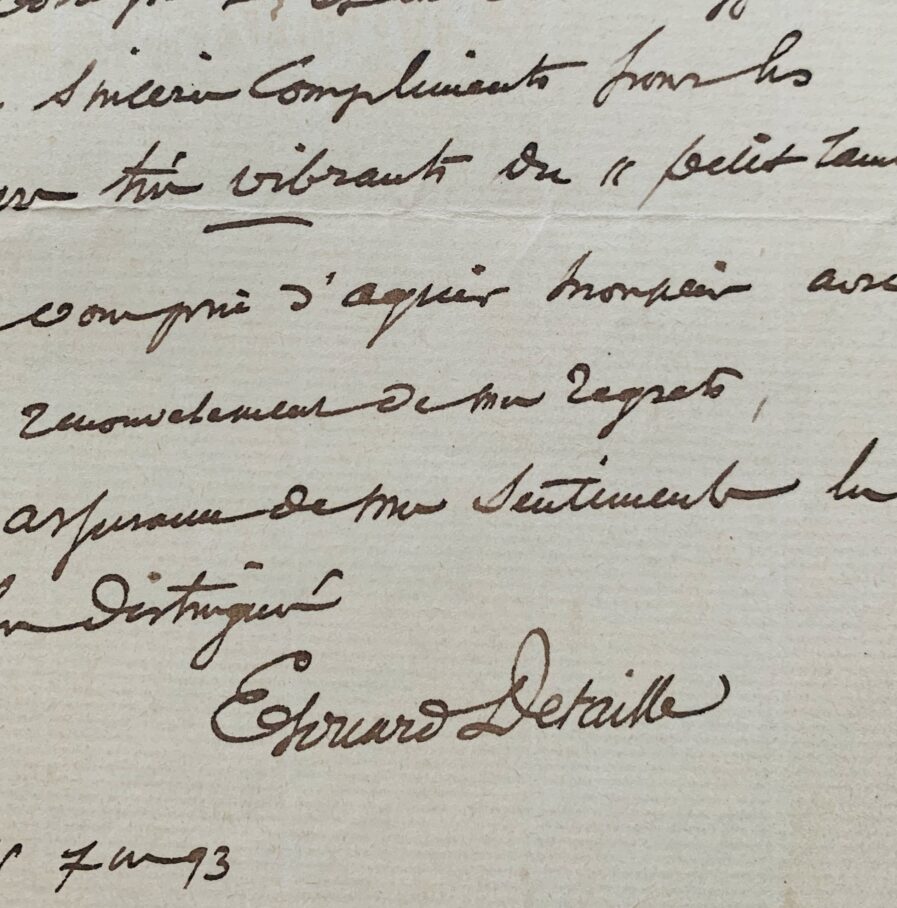 sincères compliments pour les
très vibrants du " petit Tam
compris d'agréer Monsieur avec
renouvelement de mes regrets,
assurance de mes sentiments les
distingués
Edouard Detaille
7bre 93